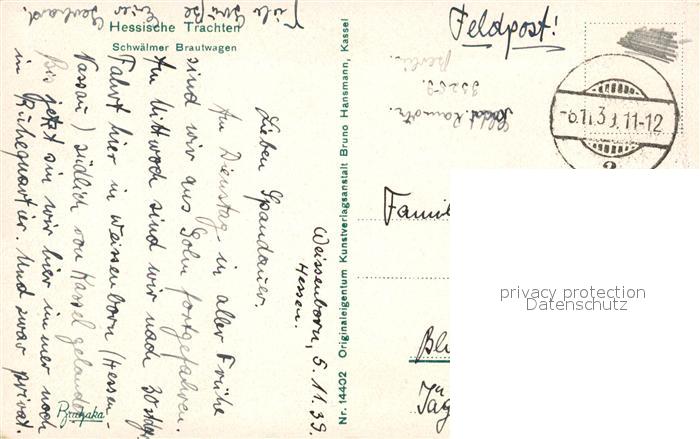 Hessische Trachten
Schwälmer Brautwagen
Weissenborn, 5.11.39.
Hessen.
Lieben Spandauer.
Am Dienstag in aller Frühe
sind wir aus Polen fortgefahren.
Am Mittwoch sind wir nach 30 stdg.
Fahrt hier in Weissenborn (Hessen-
Nassau) südlich von Kassel gelandet.
Bis jetzt sin wir hier immer noch
im Ruhequartier. Und zwar privat.
Viele Grüße
Euer
Gerhard.
Bruhaka
Nr. 14402 Originaleigentum Kunstverlagsanstalt Bruno Hansmann, Kassel
Feldpost!
Berlin.
35259.
-6.11.39.11-12
2
Famil
Bl
Jäg
privacy protection
Datenschutz